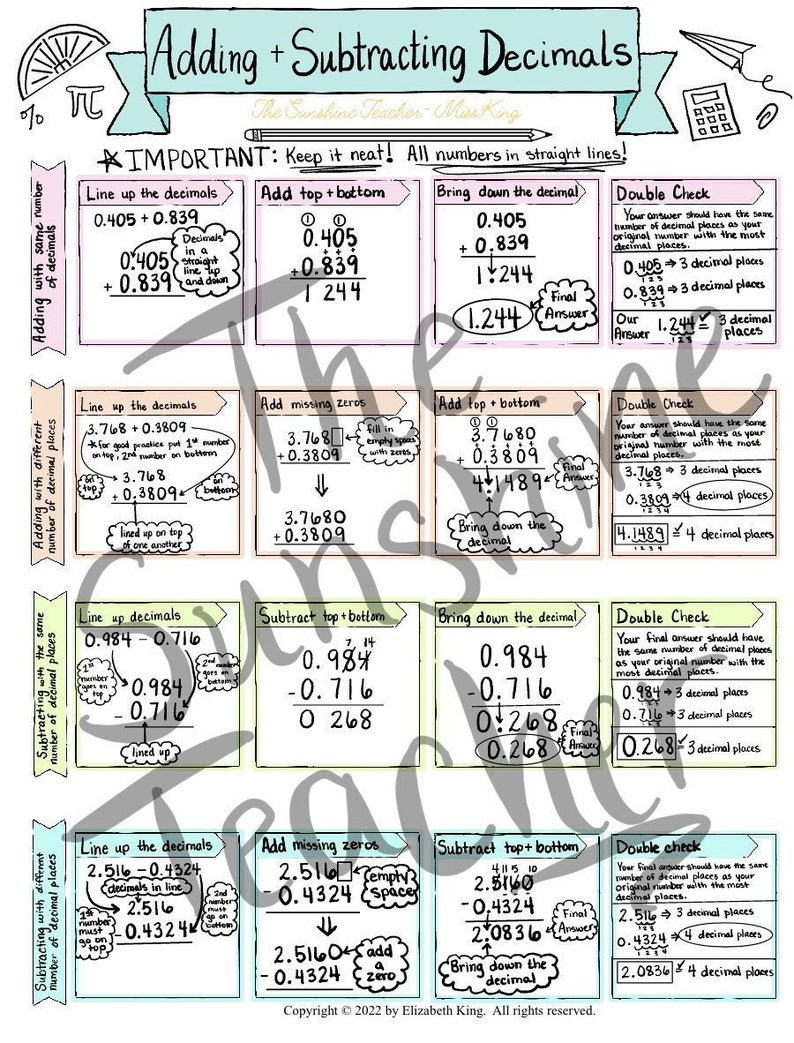 Adding + Subtracting Decimals
The Sunshine Teacher - Miss King
%
π
* IMPORTANT: Keep it neat! All numbers in straight lines!
Adding with same number
of decimals
Line up the decimals
0.405 + 0.839
0.405
+ 0.839
Decimals
in a
straight
line up
and down
Add top + bottom
1 1
0.405
+ + +
+0.839
1 244
Bring down the decimal
0.405
+ 0.839
1.244
1.244
Final
Answer
Double Check
Your answer should have the same
number of decimal places as your
original number with the most
decimal places.
0.405 ⇒ 3 decimal places
1 2 3
0.839 ⇒ 3 decimal places
1 2 3
Our
Answer
1.244 = 3 decimal
places
1 2 3
Adding with different
number of decimal places
Line up the decimals
3.768 + 0.3809
*for good practice put 1st number
on top, 2nd number on bottom
on
top
3.768
+ 0.3809
on
bottom
lined up on top
of one another
Add missing zeros
3.768
+ 0.3809
fill in
empty spaces
with zeros
3.7680
+ 0.3809
Add top + bottom
1 1
3.7680
+ 0.3809
4.1489
Final
Answer
Bring down the
decimal
Double Check
Your answer should have the same
number of decimal places as your
original number with the most
decimal places.
3.768 ⇒ 3 decimal places
1 2 3
0.3809 ⇒ 4 decimal places
1 2 3 4
4.1489 = 4 decimal places
1 2 3 4
Subtracting with the same
number of decimal places
Line up decimals
0.984 - 0.716
1st
number
goes on
top
2nd
number
goes on
bottom
0.984
- 0.716
lined up
Subtract top + bottom
7 14
0.984
- 0.716
0 268
Bring down the decimal
0.984
- 0.716
0.268
0.268
Final
Answer
Double Check
Your final answer should have
the same number of decimal places
as your original number with the
most decimal places.
0.984 ⇒ 3 decimal places
0.716 ⇒ 3 decimal places
0.268 = 3 decimal places
Subtracting with different
number of decimal places
Line up the decimals
2.516 - 0.4324
decimals in line
1st
number
must
go on
top
2.516
- 0.4324
2nd
number
must
go on
bottom
Add missing zeros
2.516
- 0.4324
empty
space
2.5160
- 0.4324
add
a
zero
Subtract top + bottom
4 11 5 10
2.5160
- 0.4324
2.0836
Final
Answer
Bring down the
decimal
Double check
Your final answer should have the same
number of decimal places as your
original number with the most
decimal places.
2.516 ⇒ 3 decimal places
1 2 3
0.4324 ⇒ 4 decimal places
1 2 3 4
2.0836 = 4 decimal places
The
Sunshine
Teacher
Copyright © 2022 by Elizabeth King. All rights reserved.